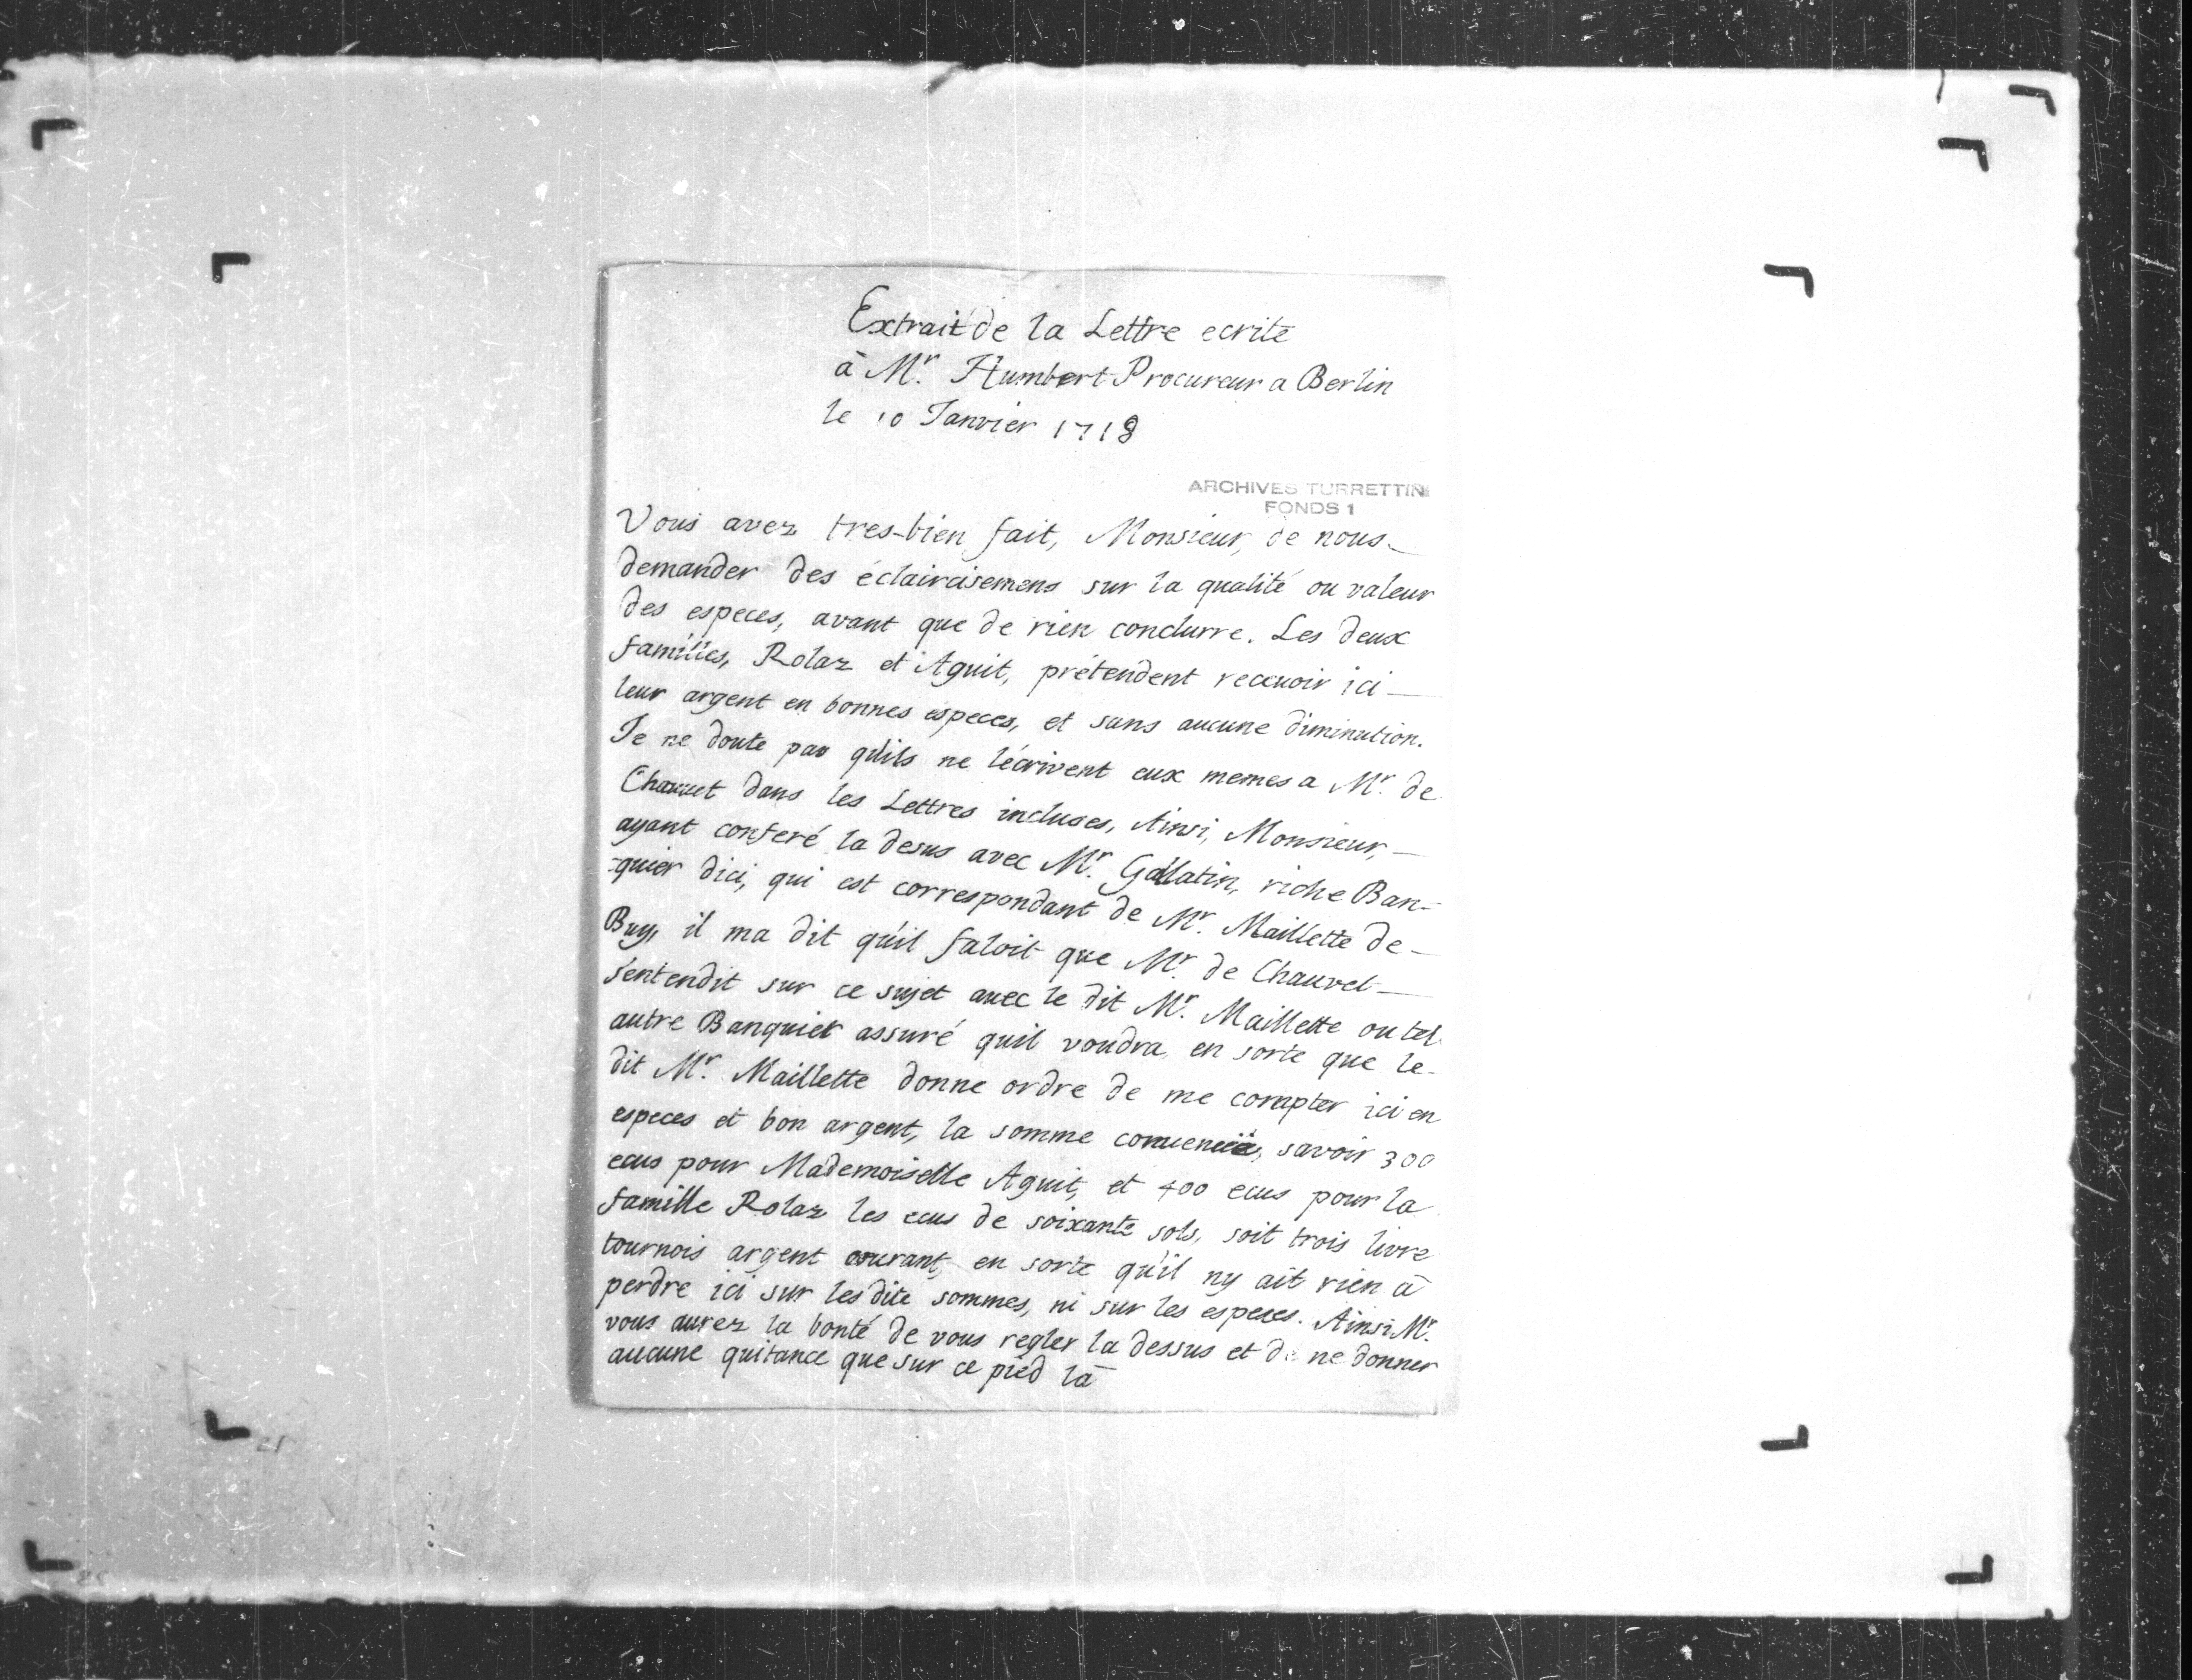 Extrait de la Lettre ecrite
à Mr. Humbert Procureur a Berlin
le 10 Janvier 1718
ARCHIVES TURRETTINI
FONDS 1
Vous avez tres-bien fait, Monsieur, de nous
demander des éclaircisemens sur la qualité ou valeur
des especes, avant que de rien conclurre. Les deux
familles, Rolaz et Aguit, prétendent recevoir ici
leur argent en bonnes especes, et sans aucune diminution.
Je ne doute pas qu'ils ne l'écrivent eux memes a Mr. de
Chauvet dans les Lettres incluses, Ainsi, Monsieur,
ayant conferé la desus avec Mr. Gallatin, riche Ban-
-quier dici, qui est correspondant de Mr. Maillette de
Buy, il ma dit qu'il faloit que Mr. de Chauvet
s'entendit sur ce sujet avec le dit Mr. Maillette ou tel
autre Banquier assuré quil voudra, en sorte que le
dit Mr. Maillette donne ordre de me compter ici en
especes et bon argent, la somme convenüe, savoir 300
ecus pour Mademoiselle Aguit, et 400 ecus pour la
famille Rolaz les ecus de soixante sols, soit trois livre
tournois argent courant, en sorte qu'il ny ait rien à
perdre ici sur les dite sommes, ni sur les especes. Ainsi Mr.
vous aurez la bonté de vous regler la dessus et de ne donner
aucune quitance que sur ce pied là